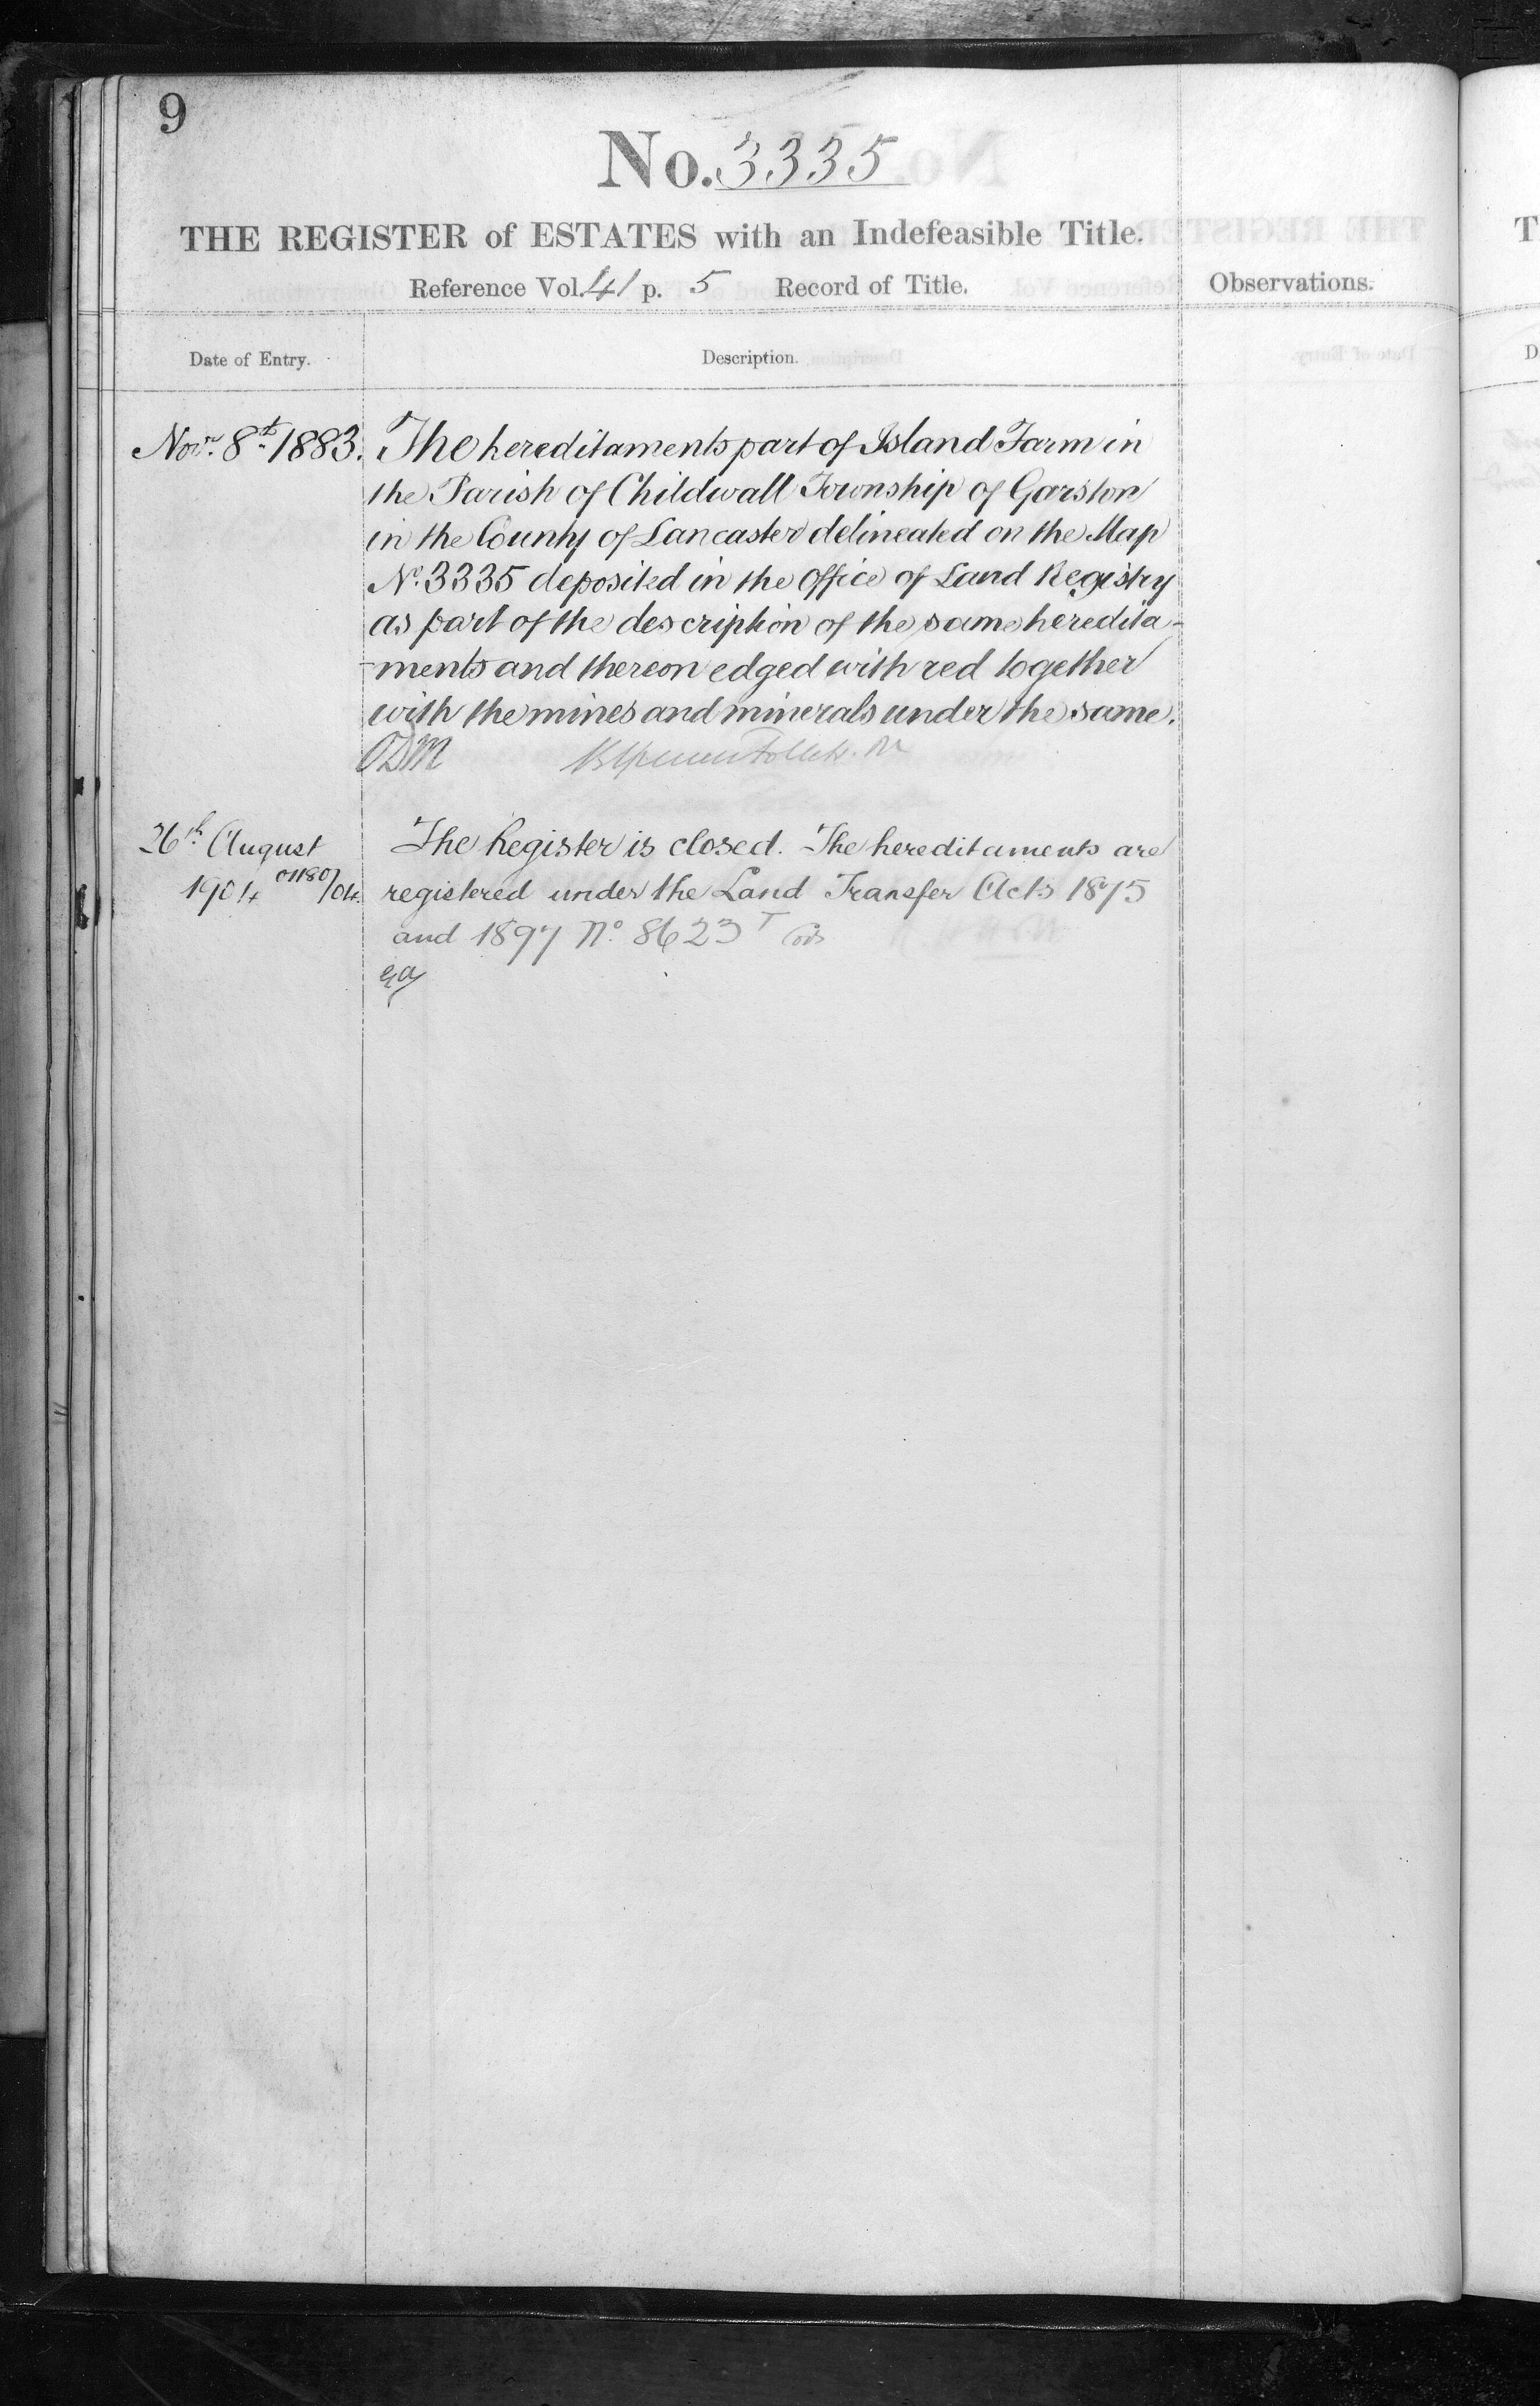 9
No. 3335
THE REGISTER of ESTATES with an Indefeasible Title.
Reference Vol. 41 p. 5 Record of Title.
Observations.
Date of Entry.
Description.
Novr. 8th 1883.
The hereditaments part of Island Farm in
the Parish of Childwall Township of Garston
in the County of Lancaster delineated on the Map
No. 3335 deposited in the Office of Land Registry
as part of the description of the same heredita-
-ments and thereon edged with red together
with the mines and minerals under the same.
26th August
1904 01180/04.
The Register is closed. The hereditaments are
registered under the Land Transfer Acts 1875
and 1897 No. 8623